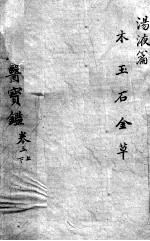 湯液篇
木玉石金草
醫寶鑑 卷之上下